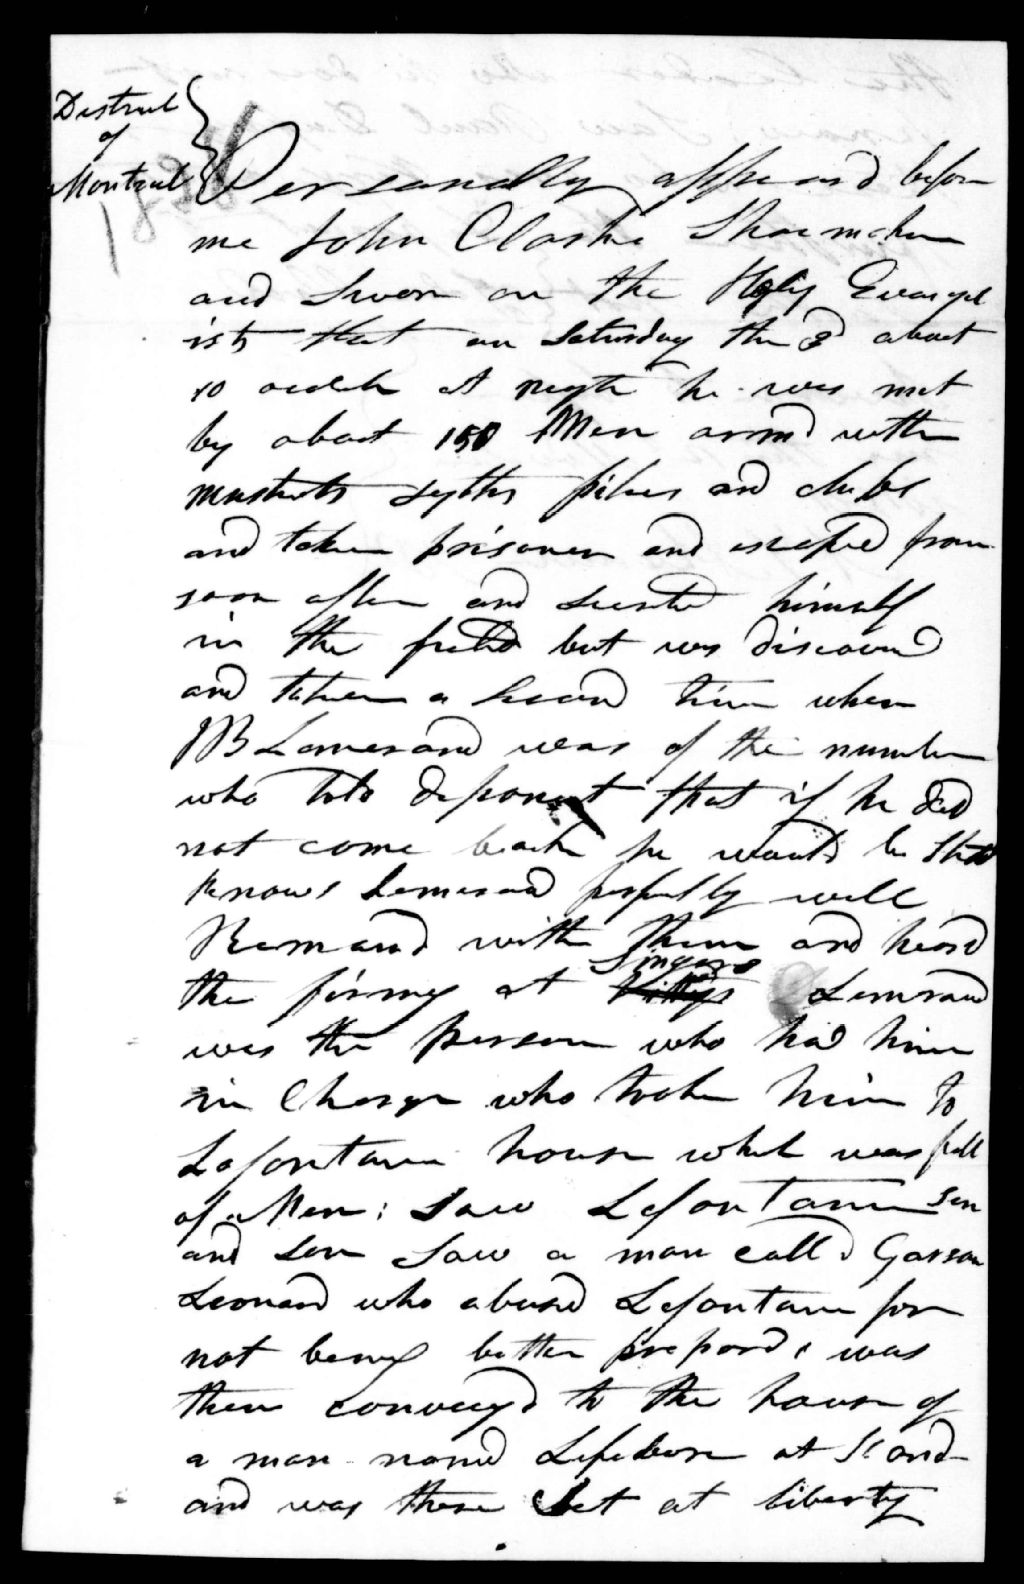 District
of
Montreal
Personally appeard before
me John Clarke Shoemaker
and Sworn on the Holy Evangel
ists that on Saturday the 3d about
10 oclok at nigth he was met
by about 150 Men armd with
muskets sythes pikes and clubs
and taken prisoner and escaped from
soon after and secreted himself
in the field but was discoverd
and taken a Second time when
JB Lamerand was of the number
who told deponent that if he did
not come back he would be Shot
Knows Lemerand perfectly well
Remaind with them and heard
the firing at Singers Lemrand
was the person who had him
in Charge who took him to
Lafontain house which was full
of Men: Saw Lafontain Sen
and Son Saw a man calld Garson
Leonard who abused Lafontain for
not being better prepard, was
then conveyd to the house of
a man named Lefebvre at St
and was there Set at liberty